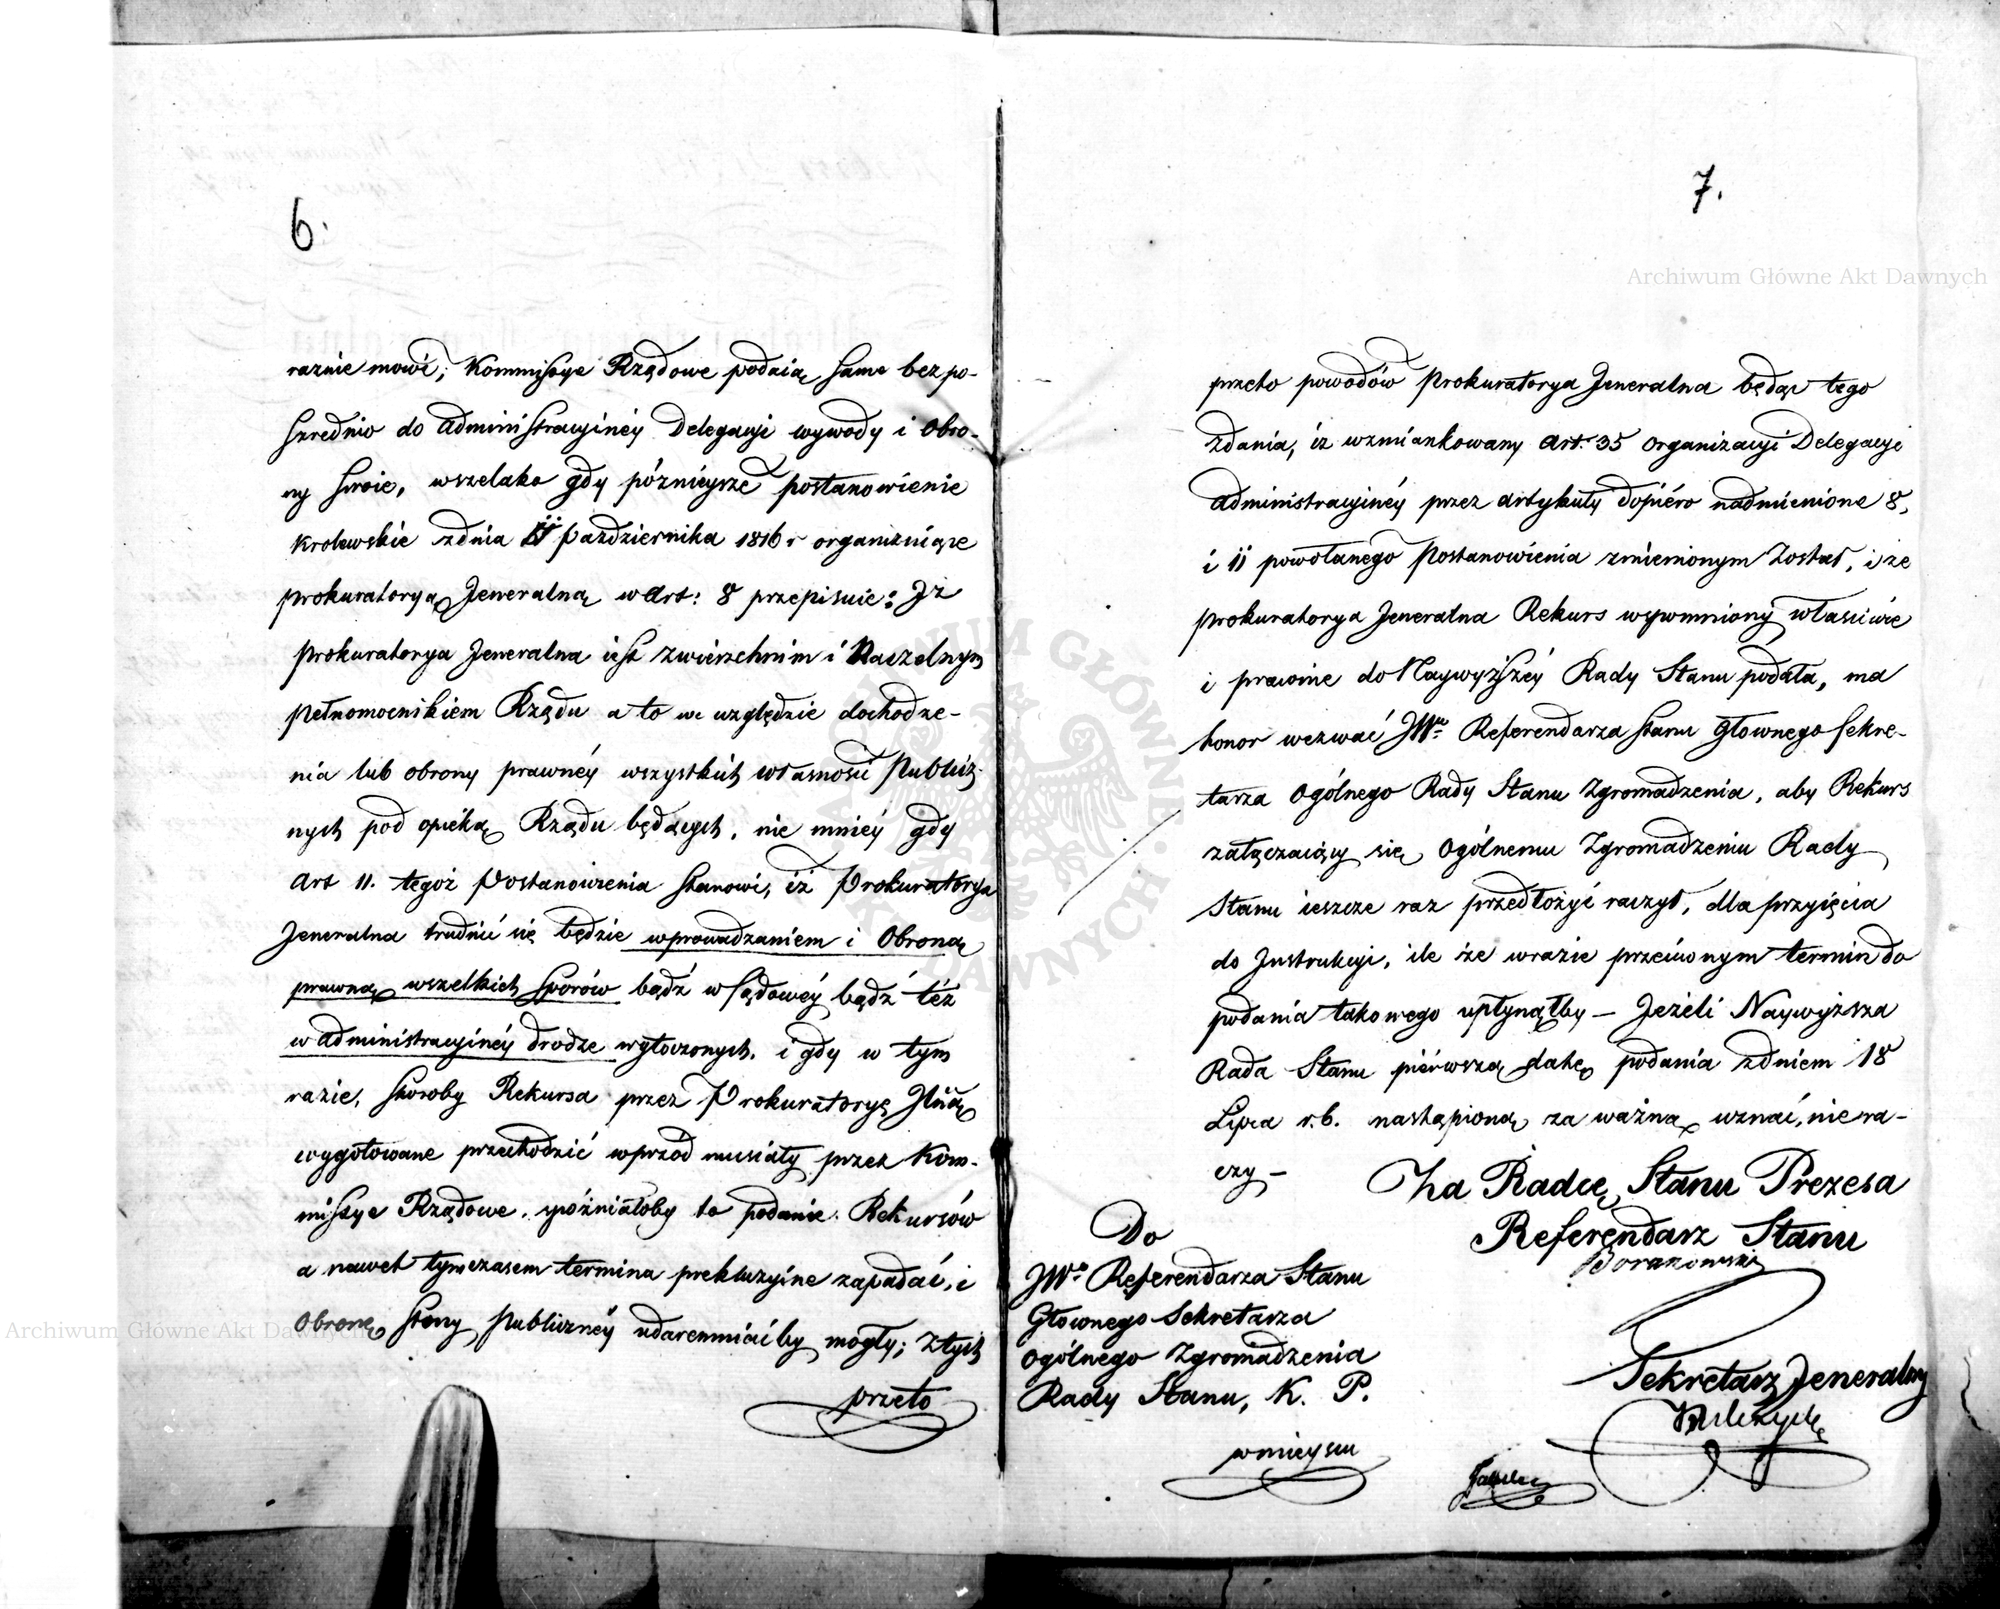 6.
raznie mowi; Kommissye Rządowe podaią same bezpo-
szrednio do Administracyiney Delegacyi wywody i obro-
ny swoie, wszelako gdy póznieysze postanowienie
Krolewskie zdnia Października 1816 r organizuiące
Prokuratoryą Jeneralną w Art: 8 przepisuie: Iż
Prokuratorya Jeneralna iest zwierzchnim i Naczelnym
Pełnomocnikiem Rządu a to we względzie dochodze-
nia lub obrony prawnéy wszystkich własnosci Publicz-
nych pod opieką Rządu będących, nie mniéy gdy
Art 11. tegoż Postanowienia stanowi, iż Prokuratorya
Jeneralna trudnić się będzie wprowadzaniem i Obroną
prawną wszelkich Sporów bądź w sądowéy bądź téż
w administracyinéy drodze wytoczonych, i gdy w tym
razie, skoroby Rekursa przez Prokuratoryę Jlną
wygotowane przechodzić wprzod musiały przez Kom-
missye Rządowe, spóźniałoby to podanie Rekursów
a nawet tymczasem termina prekluzyine zapadać, i
Obronę strony Publicznéy udaremniaćby mogły; z tych
przeto
7.
przeto powodów Prokuratorya Jeneralna będąc tego
zdania, iż wzmiankowany Art. 35 organizacyi Delegacyi
Administracyinéy przez artykuły dopiéro nadmienione 8,
i 11 powołanego Postanowienia zmienionym został, i że
Prokuratorya Jeneralna Rekurs wspomniony właściwie
i prawnie do Naywyższéy Rady Stanu podała, ma
honor wezwać JWo Referendarza Stanu Głownego Sekre-
tarza Ogólnego Rady Stanu Zgromadzenia, aby Rekurs
załączaiący się Ogólnemu Zgromadzeniu Rady
Stanu ieszcze raz przedłożyć raczył, dla przyięcia
do Instrukcyi, ile że wrazie przeciwnym termin do
podania takowego upłynąłby – Jeżeli Naywyższa
Rada Stanu piérwszą datę podania zdniem 18
Lipca r.b. nastąpioną za ważną uznać, nie ra-
czy –
Za Radcę Stanu Prezesa
Referendarz Stanu
Do
JWo Referendarza Stanu
Głownego Sekretarza
Ogólnego Zgromadzenia
Rady Stanu, K. P.
w mieyscu
Sekretarz Jeneralny
Archiwum Główne Akt Dawnych
Archiwum Główne Akt Dawnych
ARCHIWUM GŁÓWNE AKT DAWNYCH